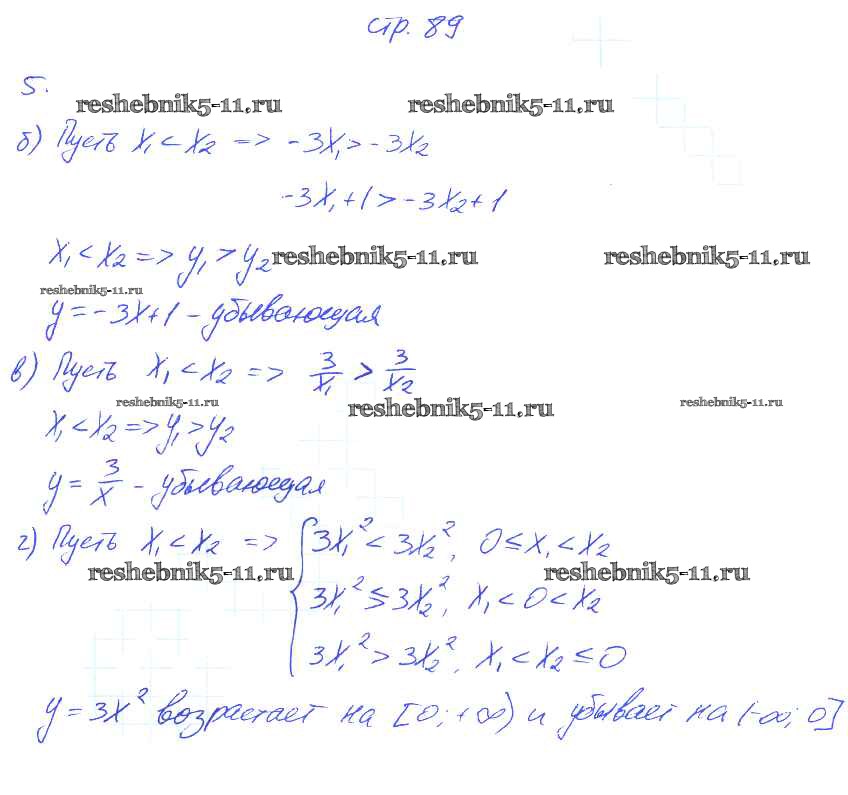 стр. 89
5.
reshebnik5-11.ru reshebnik5-11.ru
б) Пусть x₁ < x₂ => -3x₁ > -3x₂
-3x₁+1 > -3x₂+1
x₁ < x₂ => y₁ > y₂ reshebnik5-11.ru reshebnik5-11.ru
reshebnik5-11.ru
y = -3x+1 - убывающая
в) Пусть x₁ < x₂ => 3/x₁ > 3/x₂
reshebnik5-11.ru reshebnik5-11.ru reshebnik5-11.ru
x₁ < x₂ => y₁ > y₂
y = 3/x - убывающая
г) Пусть x₁ < x₂ => { 3x₁² < 3x₂², 0 ≤ x₁ < x₂
reshebnik5-11.ru reshebnik5-11.ru
3x₁² ≶ 3x₂², x₁ < 0 < x₂
3x₁² > 3x₂², x₁ < x₂ ≤ 0
y = 3x² возрастает на [0; +∞) и убывает на (-∞; 0]